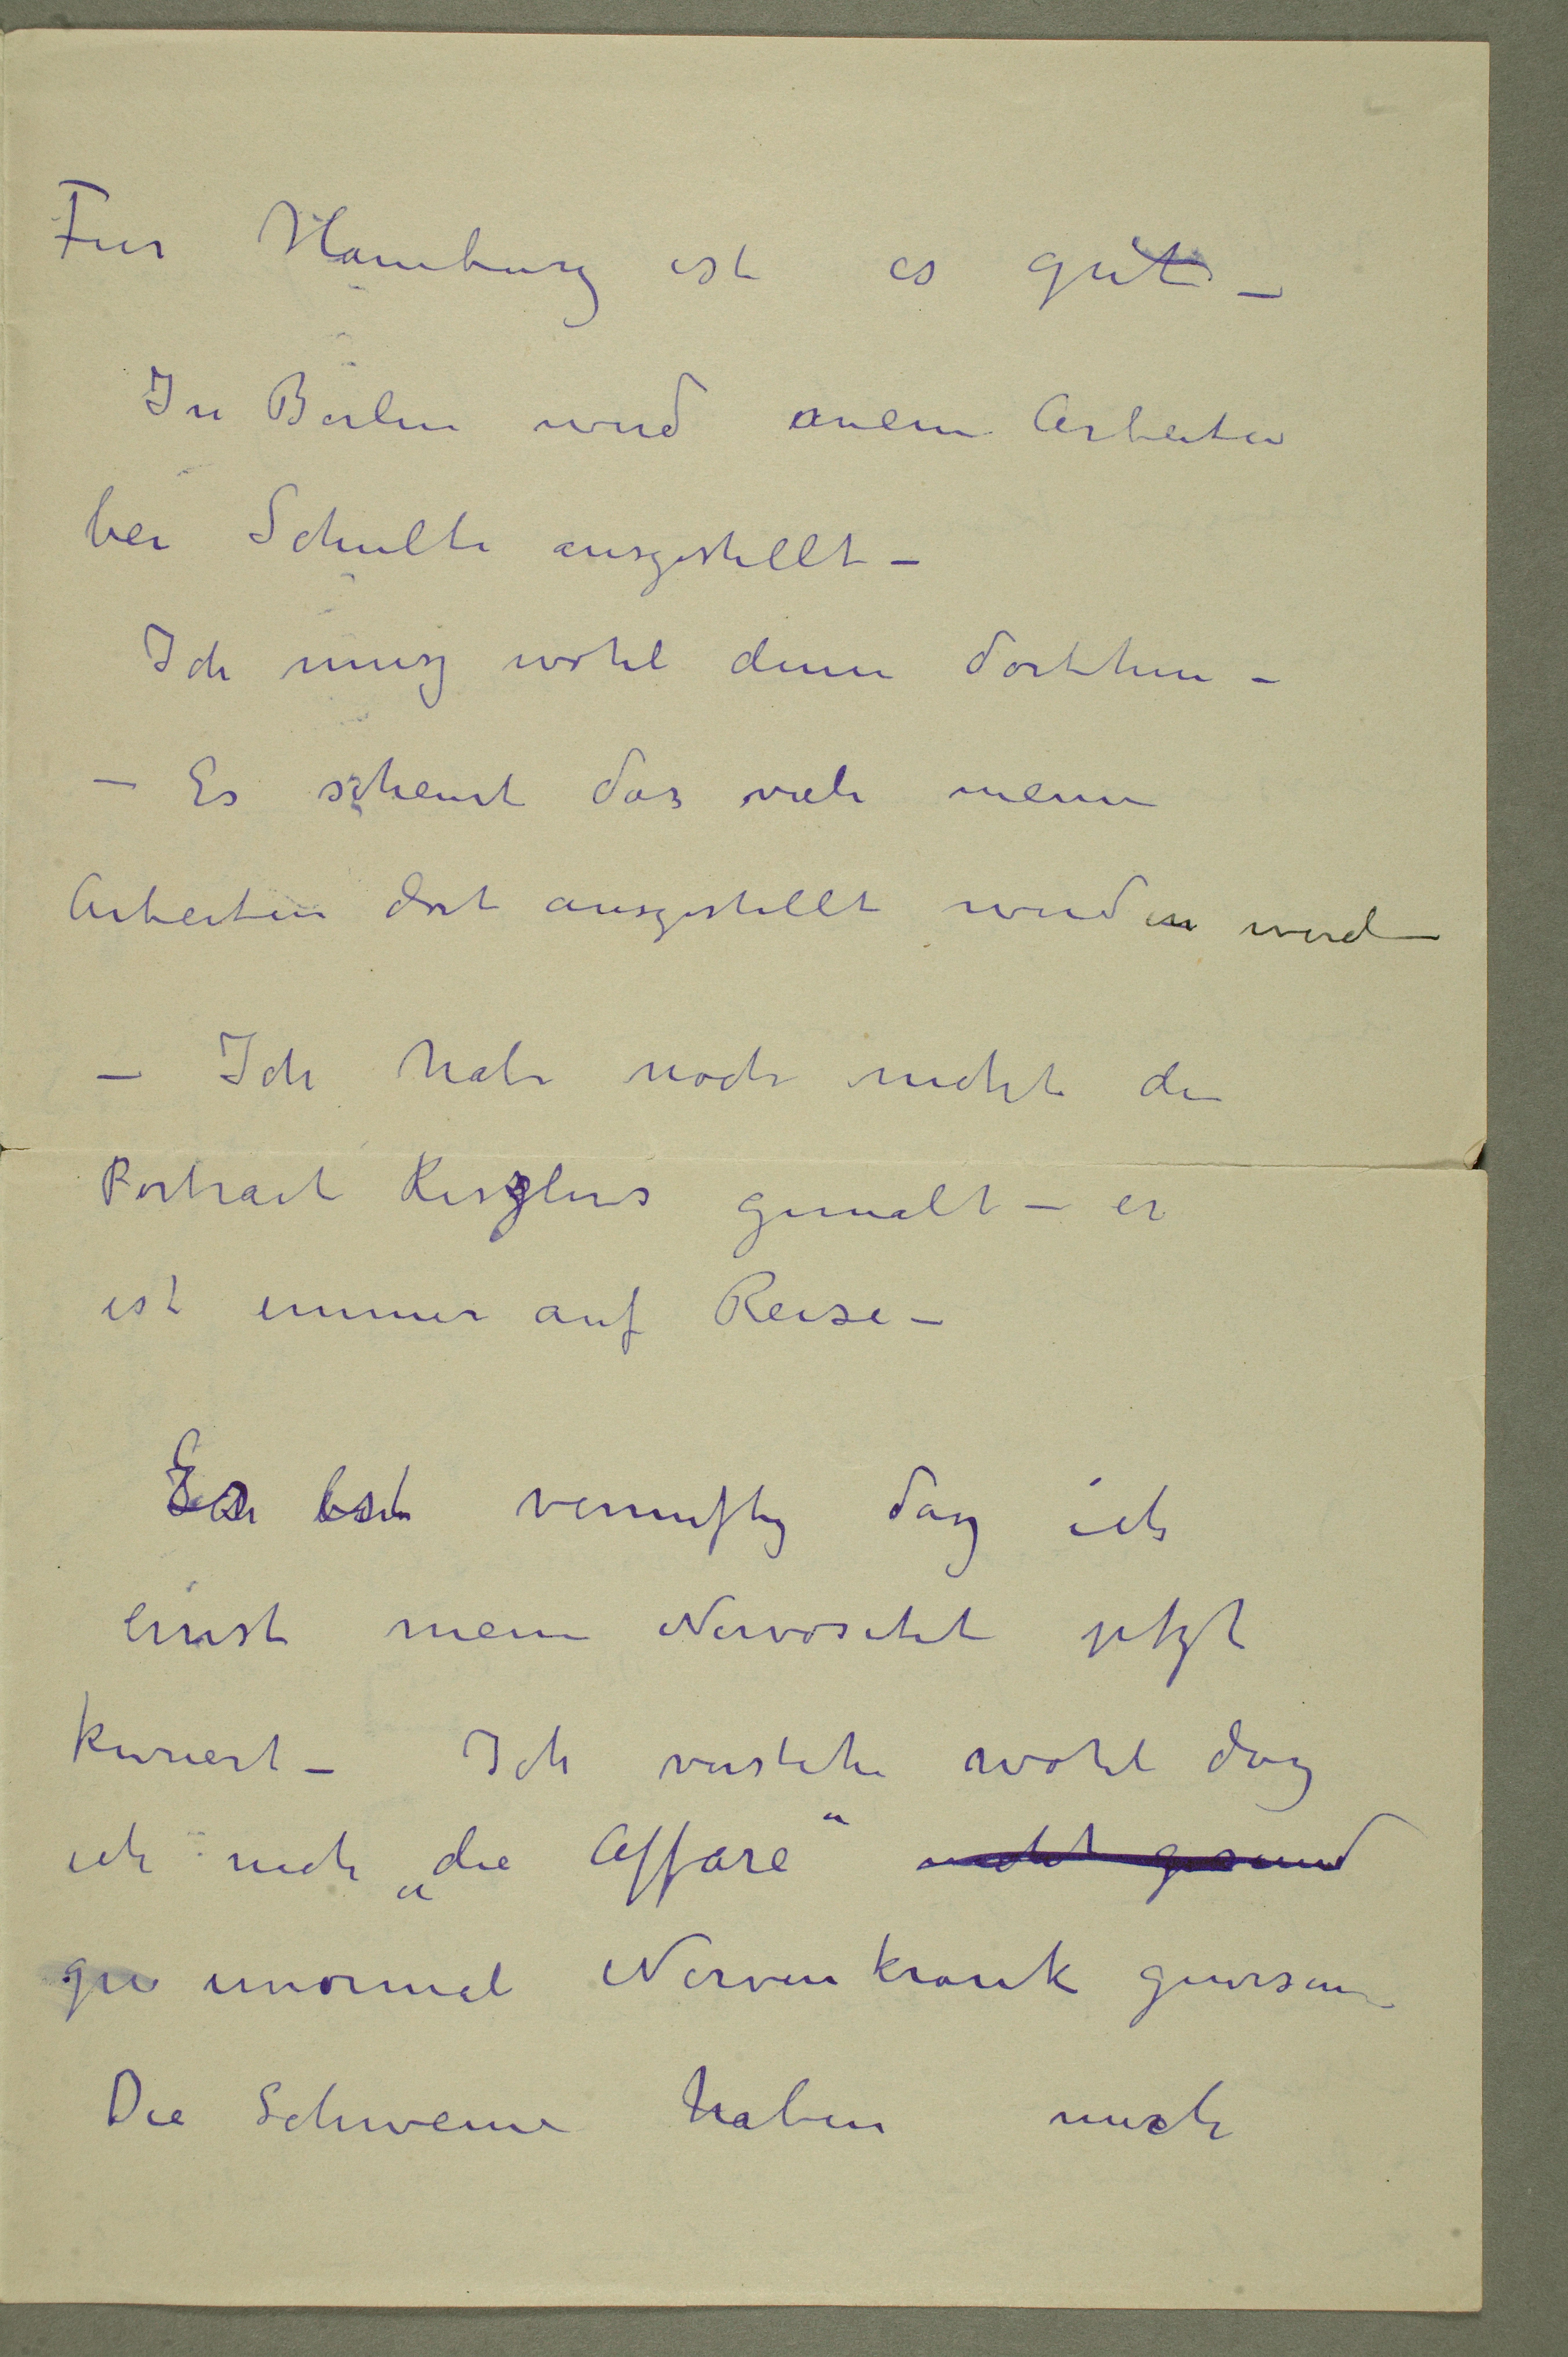 Fur Hamburg ist es gut –
In Berlin werd meine Arbeiten
bei Schulte ausgestellt –
Ich musz wohl denn dorthin –
– Es scheint das viele meine
Arbeiten dort ausgestellt werden werd
– Ich habe noch nicht den
Portrait Keszlers gemalt – er
ist immer auf Reise –
Es ist vernuftig dasz ich
ernst meine Nervositet jetzt
kuriert – Ich verstehe wohl dasz
ich nach „die Affäre“ nicht gesund
unormal Nervenkrank gewesen
Die Schweine haben mich